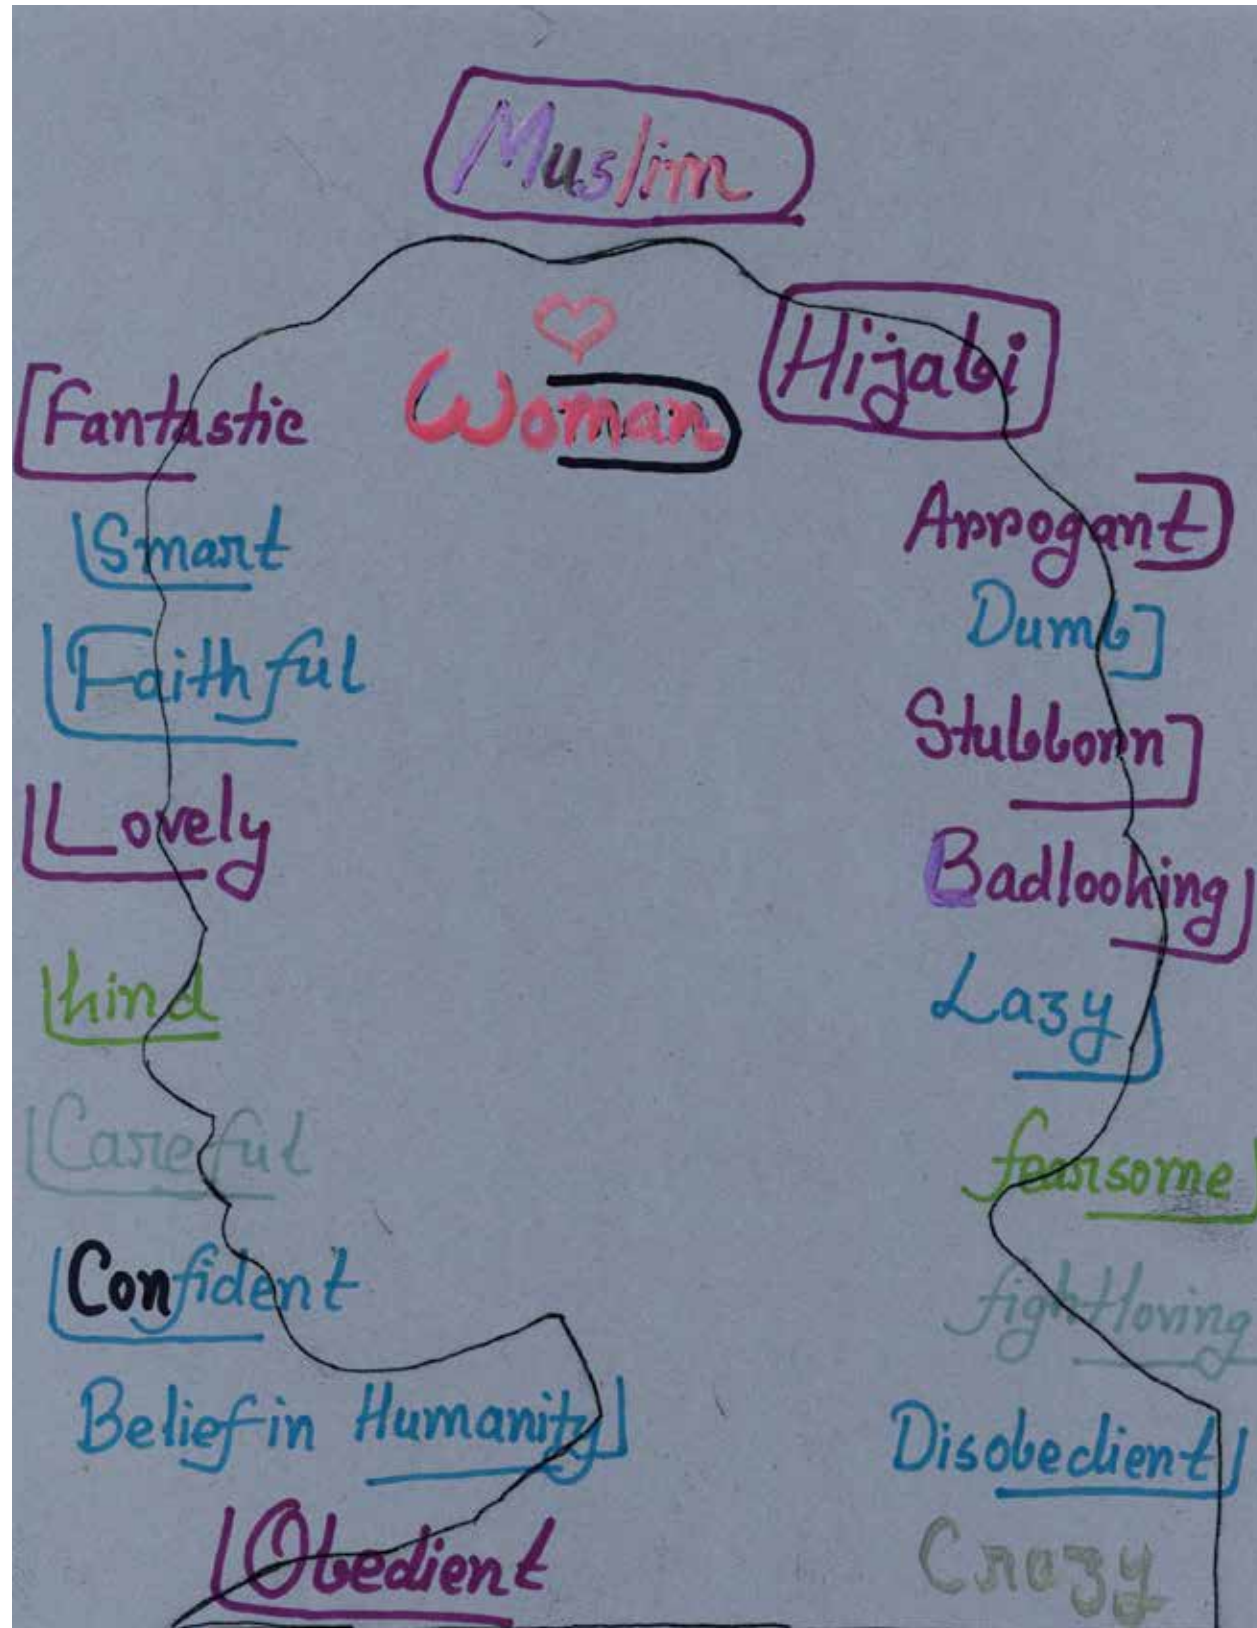 Muslim
Woman
Hijabi
Fantastic
Smart
Faithful
Lovely
kind
Careful
Confident
Belief in Humanity
Obedient
Arrogant
Dumb
Stubborn
Badlooking
Lazy
fearsome
fightloving
Disobedient
Crazy